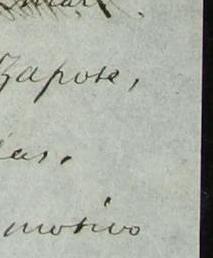 Zapose,
las.
motivo